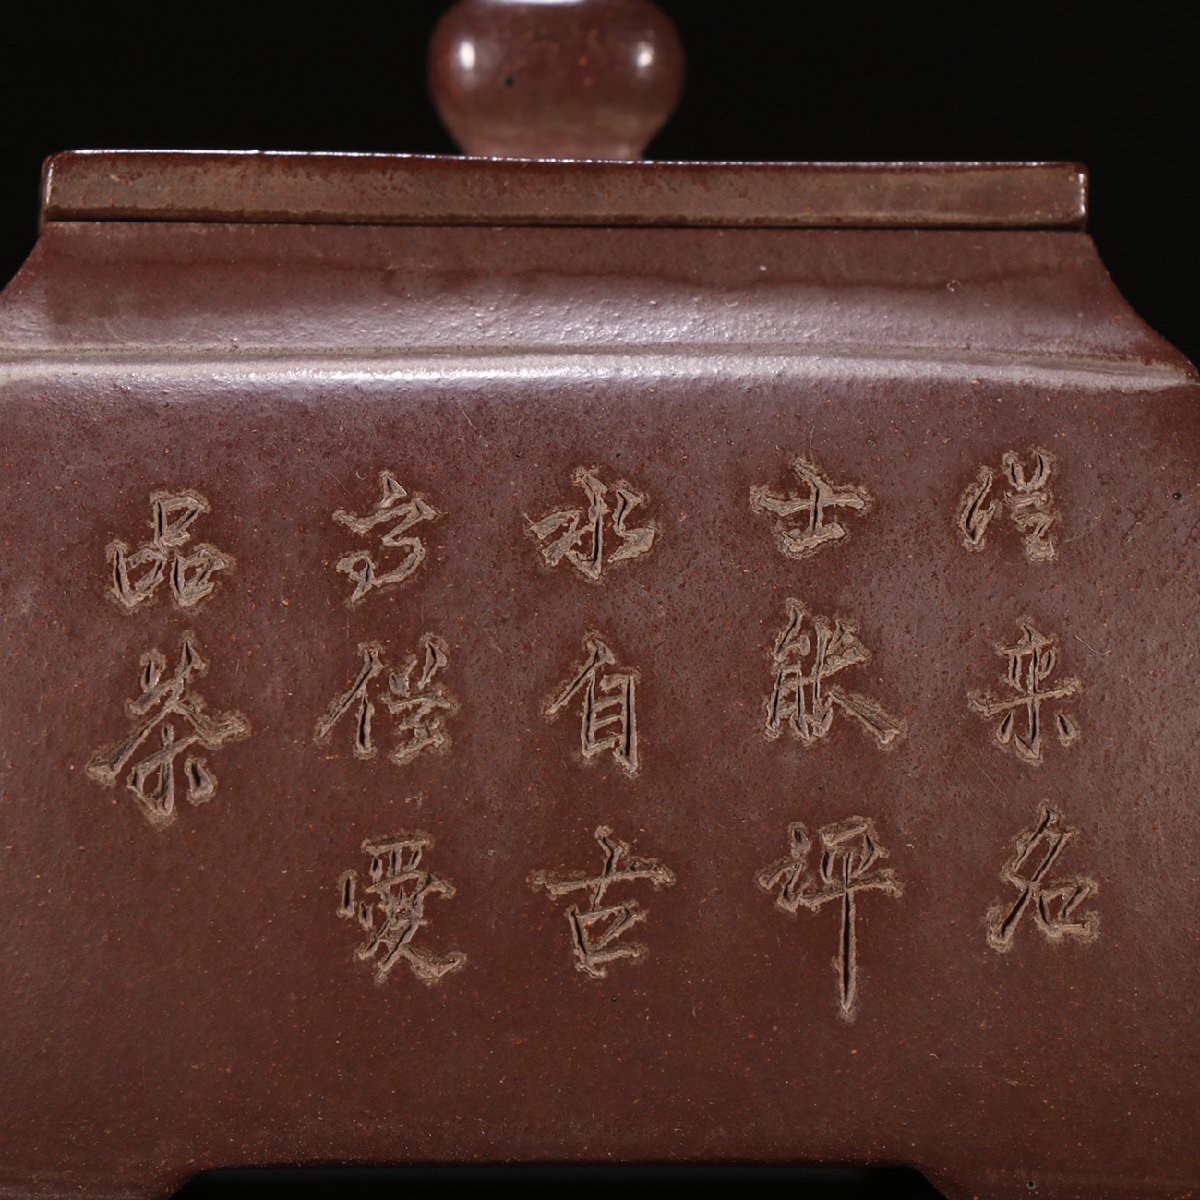 從来名
士能評
水自古
高僧愛
品茶